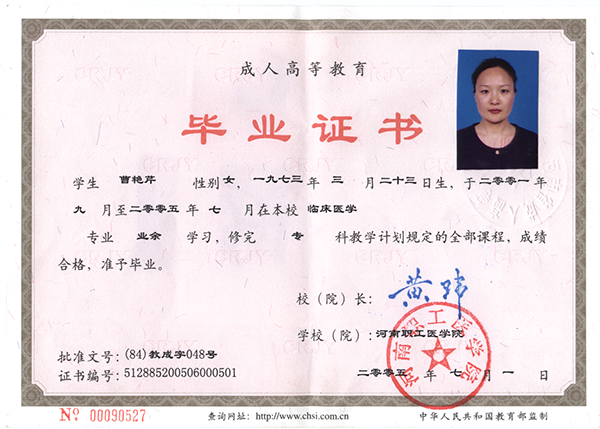 成人高等教育
毕业证书
学生 曹艳芹 性别女，一九七三年 三 月二十三日生，于二〇〇一年
九 月至二〇〇五年 七 月在本校 临床医学
专业 业余 学习，修完 专 科教学计划规定的全部课程，成绩
合格，准予毕业。
校（院）长： 黄玮
学校（院）： 河南职工医学院
河南职工医学院
批准文号：(84)教成字048号
证书编号：512885200506000501
二〇〇五 年 七 月 一 日
№ 00090527
查询网址：http://www.chsi.com.cn
中华人民共和国教育部监制